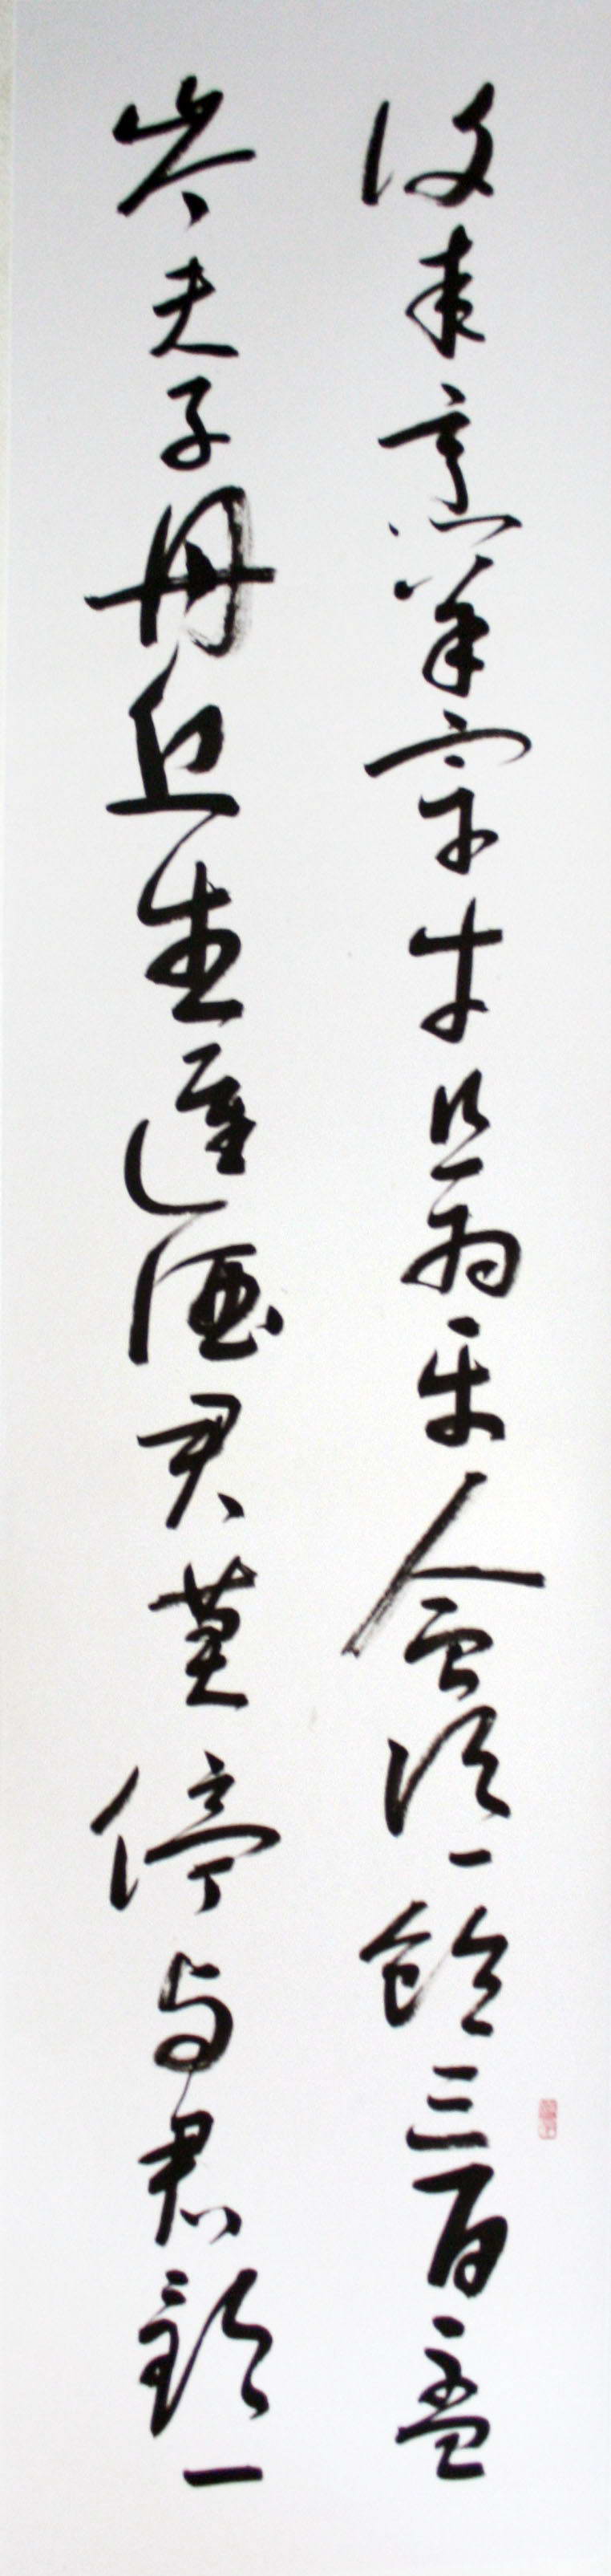 復來烹羊宰牛且為樂會須一飲三百盃
岑夫子丹丘生進酒君莫停與君歌一